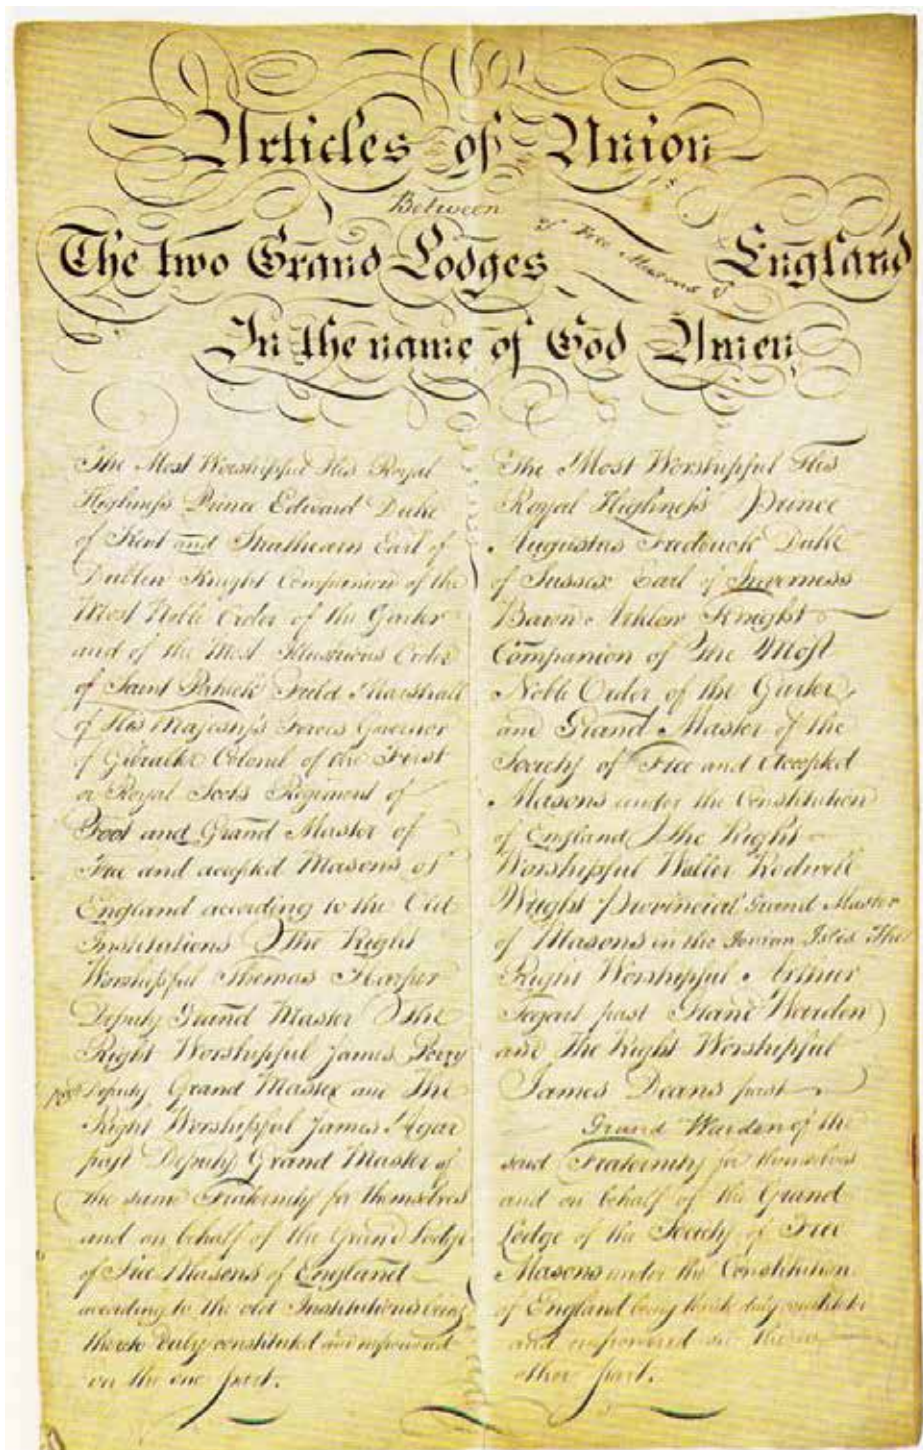 Articles of Union
Between
The two Grand Lodges of Free Masons of England
In the name of God Amen
The Most Worshipful His Royal
Highness Prince Edward Duke
of Kent and Strathearn Earl of
Dublin Knight Companion of the
Most Noble Order of the Garter
and of the Most Illustrious Order
of Saint Patrick Field Marshall
of His Majesty's Forces Governor
of Gibralter Colonel of the First
or Royal Scots Regiment of
Foot and Grand Master of
Free and accepted Masons of
England according to the Old
Institutions The Right
Worshipful Thomas Harper
Deputy Grand Master The
Right Worshipful James Perry
past Deputy Grand Master and The
Right Worshipful James Agar
past Deputy Grand Master of
the same Fraternity for themselves
and on behalf of the Grand Lodge
of Free Masons of England
according to the old Institutions being
thereto duly constituted and empowered
on the one part.
The Most Worshipful His
Royal Highness Prince
Augustus Frederick Duke
of Sussex Earl of Inverness
Baron Arklow Knight
Companion of The Most
Noble Order of the Garter
and Grand Master of the
Society of Free and Accepted
Masons under the Constitution
of England The Right
Worshipful Waller Rodwell
Wright Provincial Grand Master
of Masons in the Ionian Isles The
Right Worshipful Arthur
Tegart past Grand Warden
and The Right Worshipful
James Deans past
Grand Warden of the
said Fraternity for themselves
and on behalf of the Grand
Lodge of the Society of Free
Masons under the Constitution
of England being thereto duly constituted
and empowered on the
other part.